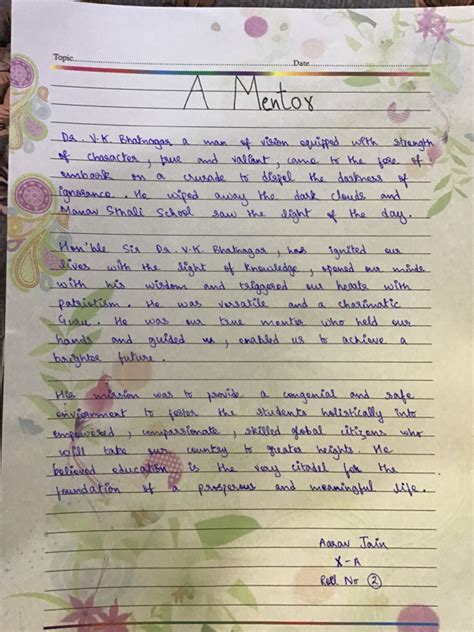 Topic Date
A Mentor
Dr. V.K. Bhatnagar a man of vision equipped with strength
of character, true and valiant, came to the fore of
embark on a crusade to dispel the darkness of
ignorance. He wiped away the dark clouds and
Manav Sthali School saw the light of the day.
Hon'ble Sir Dr V.K. Bhatnagar, has ignited our
lives with the light of knowledge, opened our minds
with his wisdom and triggered our hearts with
patriotism. He was versatile and a charimatic
Guru. He was our true mentor who held our
hands and guided us, enabled us to achieve a
brighter future.
His mission was to provide a congenial and safe
enviornment to foster the students holistically into
empowered, compassionate, skilled global citizens who
will take our country to greater heights. He
believed education is the very citadel for the
foundation of a prosperous and meaningful life.
Aarav Jain
X-A
Roll No 2